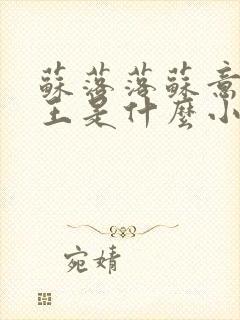 蘇落落蘇意
王是什麼小
宛婧